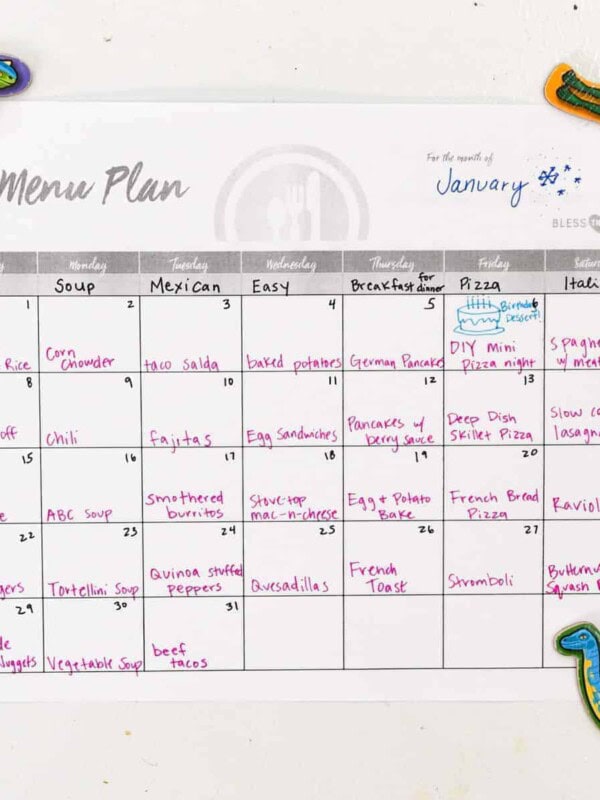 Menu Plan
For the month of
January
BLESS
Monday Tuesday Wednesday Thursday Friday
Soup Mexican Easy Breakfast for dinner Pizza Itali
1 2 3 4 5 6
Birthday
Dessert!
Rice
Corn
Chowder
taco salda
baked potatoes
German Pancake
DIY Mini
Pizza night
Spaghe
w/ meat
8 9 10 11 12 13
off
Chili
fajitas
Egg Sandwiches
Pancakes w/
berry sauce
Deep Dish
Skillet Pizza
Slow co
lasagn
15 16 17 18 19 20
e
ABC Soup
Smothered
burritos
Stove-top
mac-n-cheese
Egg & Potato
Bake
French Bread
Pizza
Raviol
22 23 24 25 26 27
gers
Tortellini Soup
Quinoa stuffed
peppers
Quesadillas
French
Toast
Stromboli
Butternu
Squash
29 30 31
de
Nuggets
Vegetable Soup
beef
tacos